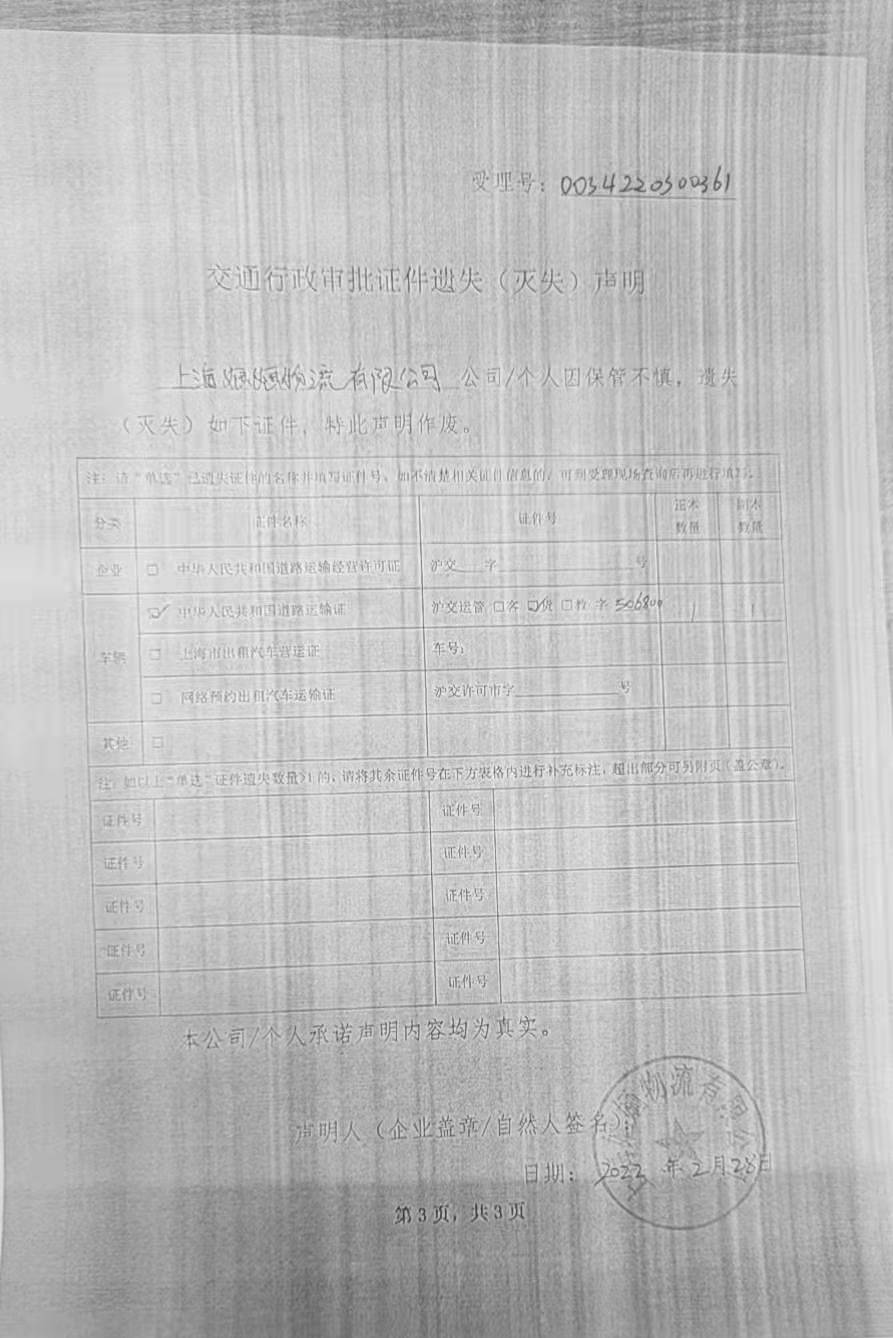 受理号：0034220300361
交通行政审批证件遗失（灭失）声明
上海 物流有限公司 公司/个人因保管不慎，遗失
（灭失）如下证件，特此声明作废。
注：请“单选”已遗失证件的名称并填写证件号。如不清楚相关证件信息的，可到受理现场查询后再进行填写。
分类 证件名称 证件号 正本数量 副本数量
企业 □ 中华人民共和国道路运输经营许可证 沪交 字 号
车辆 ☑ 中华人民共和国道路运输证 沪交运管 □客 ☑货 □教 字 506800 1 1
□ 上海市出租汽车营运证 车号：
□ 网络预约出租汽车运输证 沪交许可市字 号
其他 □
注：如以上“单选”证件遗失数量>1的，请将其余证件号在下方表格内进行补充标注，超出部分可另附页（盖公章）。
证件号 证件号
证件号 证件号
证件号 证件号
证件号 证件号
证件号 证件号
本公司/个人承诺声明内容均为真实。
声明人（企业盖章/自然人签名）：
物流有限公
日期：2022 年 2月28日
第3页，共3页